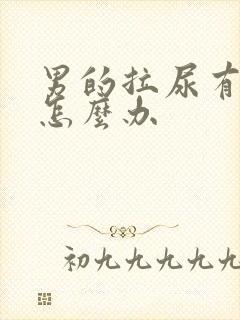 男的拉尿有
怎麼办
初九九九九九